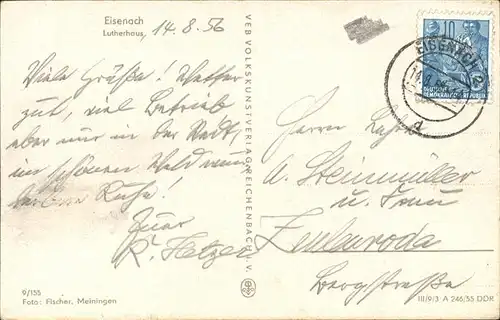 Eisenach
Lutherhaus, 14.8.56
Viele Grüße! Wetter
gut, viel Betrieb
aber nur in der Stadt,
im schönen Wald wun
derbare Ruhe!
R. Hetzer
9/155
Foto: Fischer, Meiningen
VEB VOLKSKUNSTVERLAG REICHENBACH I. V.
10
DEUTSCHE
DEMOKRATISCHE REPUBLIK
EISENACH 2
d
Herrn
A. Steinmüller
u. Frau
Zeulenroda
Bergstraße
III/9/3 A 246/55 DDR